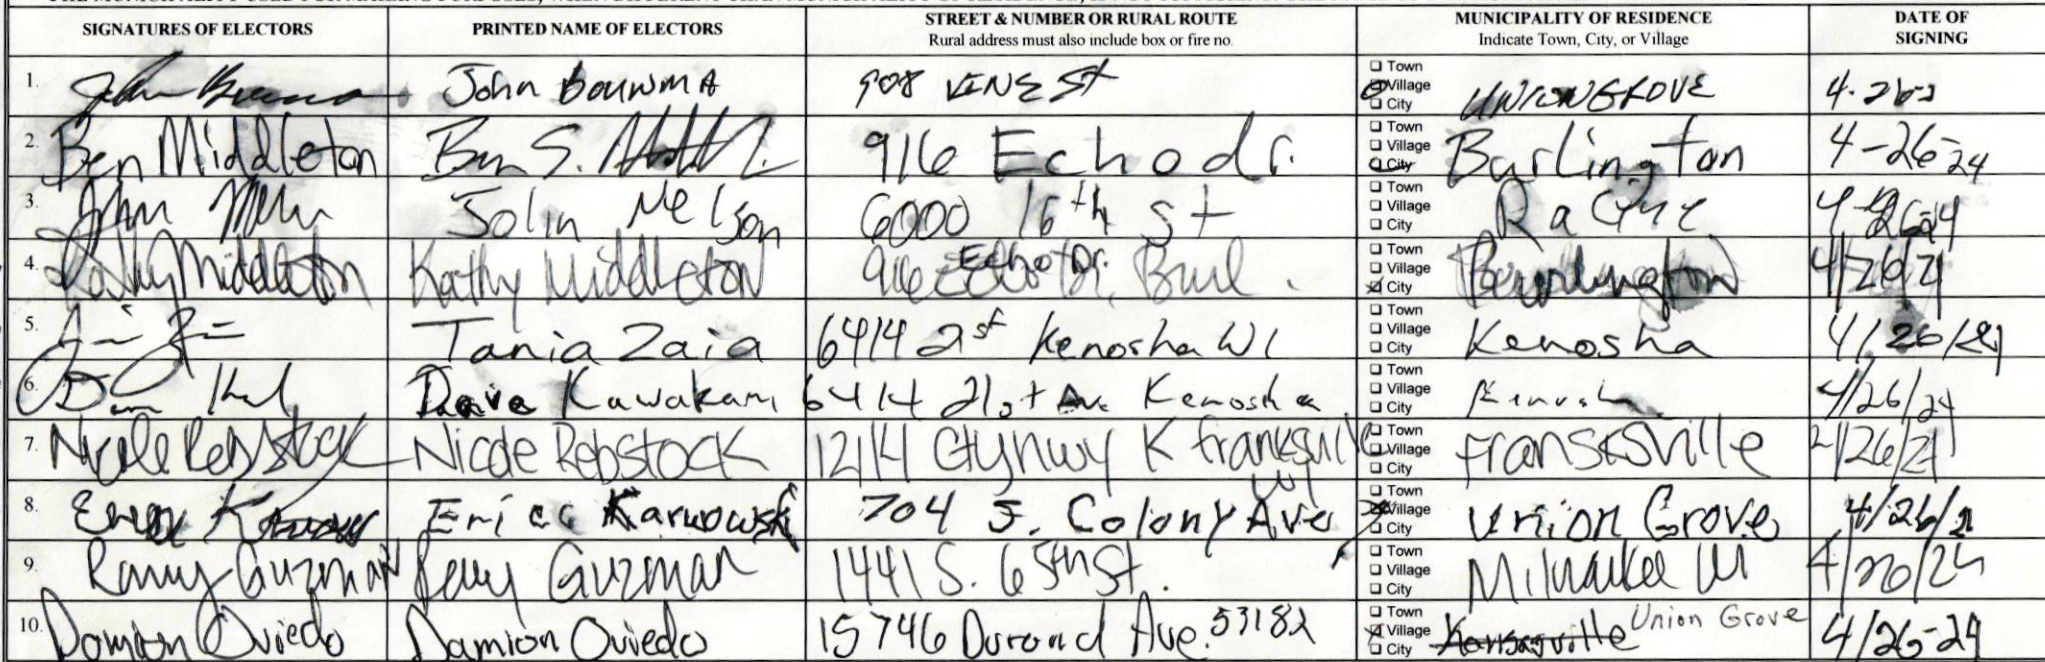 SIGNATURES OF ELECTORS PRINTED NAME OF ELECTORS STREET & NUMBER OR RURAL ROUTE MUNICIPALITY OF RESIDENCE DATE OF
Rural address must also include box or fire no. Indicate Town, City, or Village SIGNING
1. John Bouwma 908 VINE St Town Village City UNION GROVE 4-26-
2. Ben Middleton Ben S. 916 Echo dr. Town Village City Burlington 4-26-24
3. John Nelson 6000 16th St Town Village City Racine
4. Kathy Middleton Kathy Middleton 916 Echo Dr. Burl. Town Village City Burlington 4/26/24
5. Tania Zaia 6414 21st Kenosha WI Town Village City Kenosha 4/26/24
6. Dave Kawakami 6414 21st Ave Kenosha Town Village City 4/26/24
7. Nicole Rebstock Nicole Rebstock K franksville WI Town Village City 
8. Erica Karwowski 704 S. Colony Ave Town Village City Union Grove 4/26/2
9. Remy Guzman Remy Guzman 1441 S. 65th St. Town Village City Milwaukee WI
10. Damion Oviedo Damion Oviedo 15746 Durand Ave. 53182 Town Village City Kansasville Union Grove 4/26-24